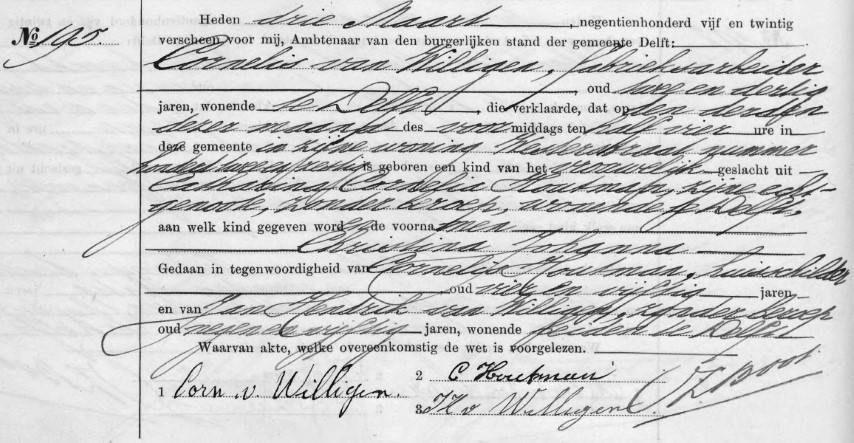 Heden drie Maart, negentienhonderd vijf en twintig
No 195 verscheen voor mij, Ambtenaar van den burgerlijken stand der gemeente Delft:
Cornelis van Willigen, fabrieksarbeider
, oud twee en dertig
jaren, wonende te Delft, die verklaarde, dat op den derden
dezer maand des voormiddags ten half vier ure in
deze gemeente in zijne woning nummer
honderd is geboren een kind van het vrouwelijk geslacht uit
Catharina Cornelia Houtman, zijne echt-
genoote, zonder beroep, wonende te Delft,
aan welk kind gegeven word de voornamen
Christina Johanna
Gedaan in tegenwoordigheid van Cornelis Houtman, huisschilder
, oud vier en vijftig jaren
en van Jan Hendrik van Willigen, zonder beroep
oud negen en vijftig jaren, wonende beiden te Delft
Waarvan akte, welke overeenkomstig de wet is voorgelezen.
1 Corn v. Willigen. 2 C Houtman
3 v Willigen